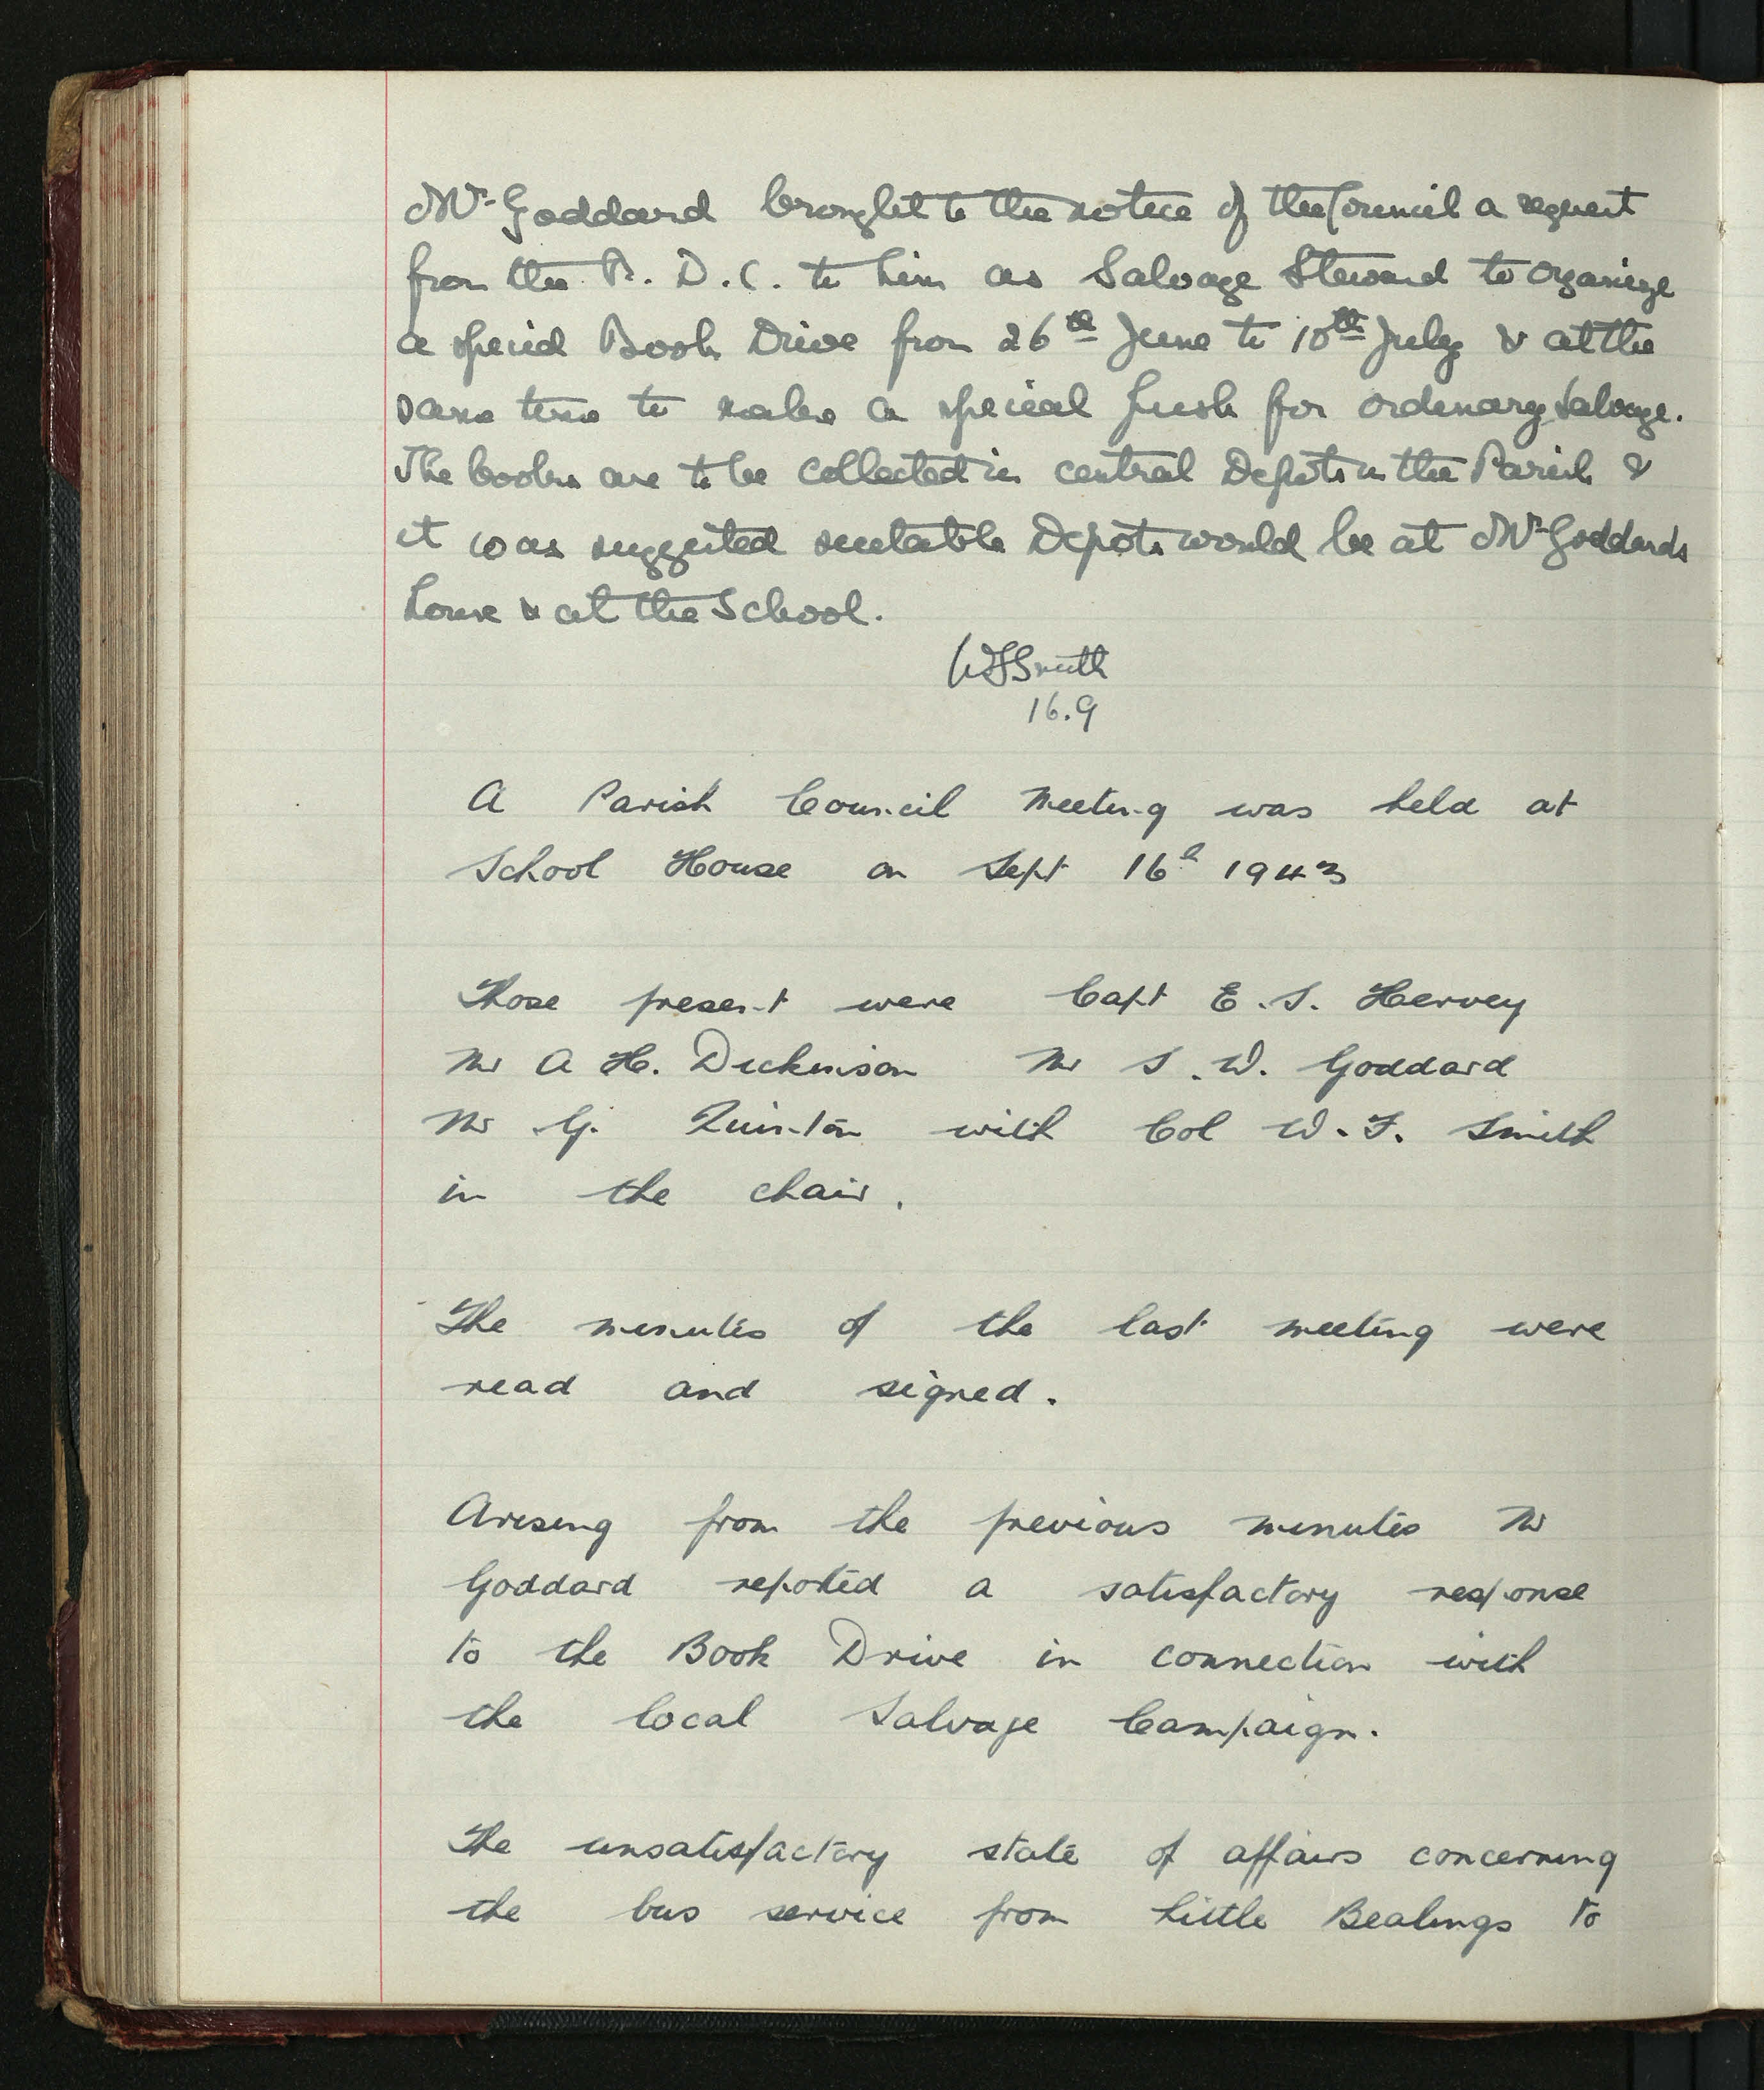 Mr. Goddard brought to the notice of the Council a request
from the R. D. C. to him as Salvage Steward to organize
a special Book Drive from 26th June to 10th July & at the
same time to make a special push for ordinary salvage.
The books are to be collected in central Depots in the Parish &
it was suggested suitable Depots would be at Mr. Goddards
house & at the School.
WFSmith
16.9
A Parish Council Meeting was held at
School House on Sept 16th 1943
Those present were Capt E. S. Hervey
Mr A H. Dickinson Mr S. W. Goddard
Mr G. Quinton with Col W. F. Smith
in the chair.
The minutes of the last meeting were
read and signed.
Arising from the previous minutes Mr
Goddard reported a satisfactory response
to the Book Drive in connection with
the local Salvage Campaign.
The unsatisfactory state of affairs concerning
the bus service from Little Bealings to